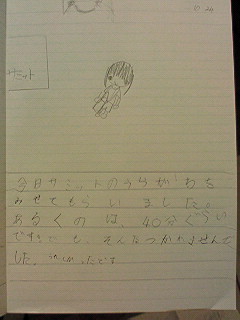 サミット
今日サミットのうらがわを
みせてもらいました。
あるくのは、40分ぐらい
です。でも、そんなつかれませんで
した。うれしかったです